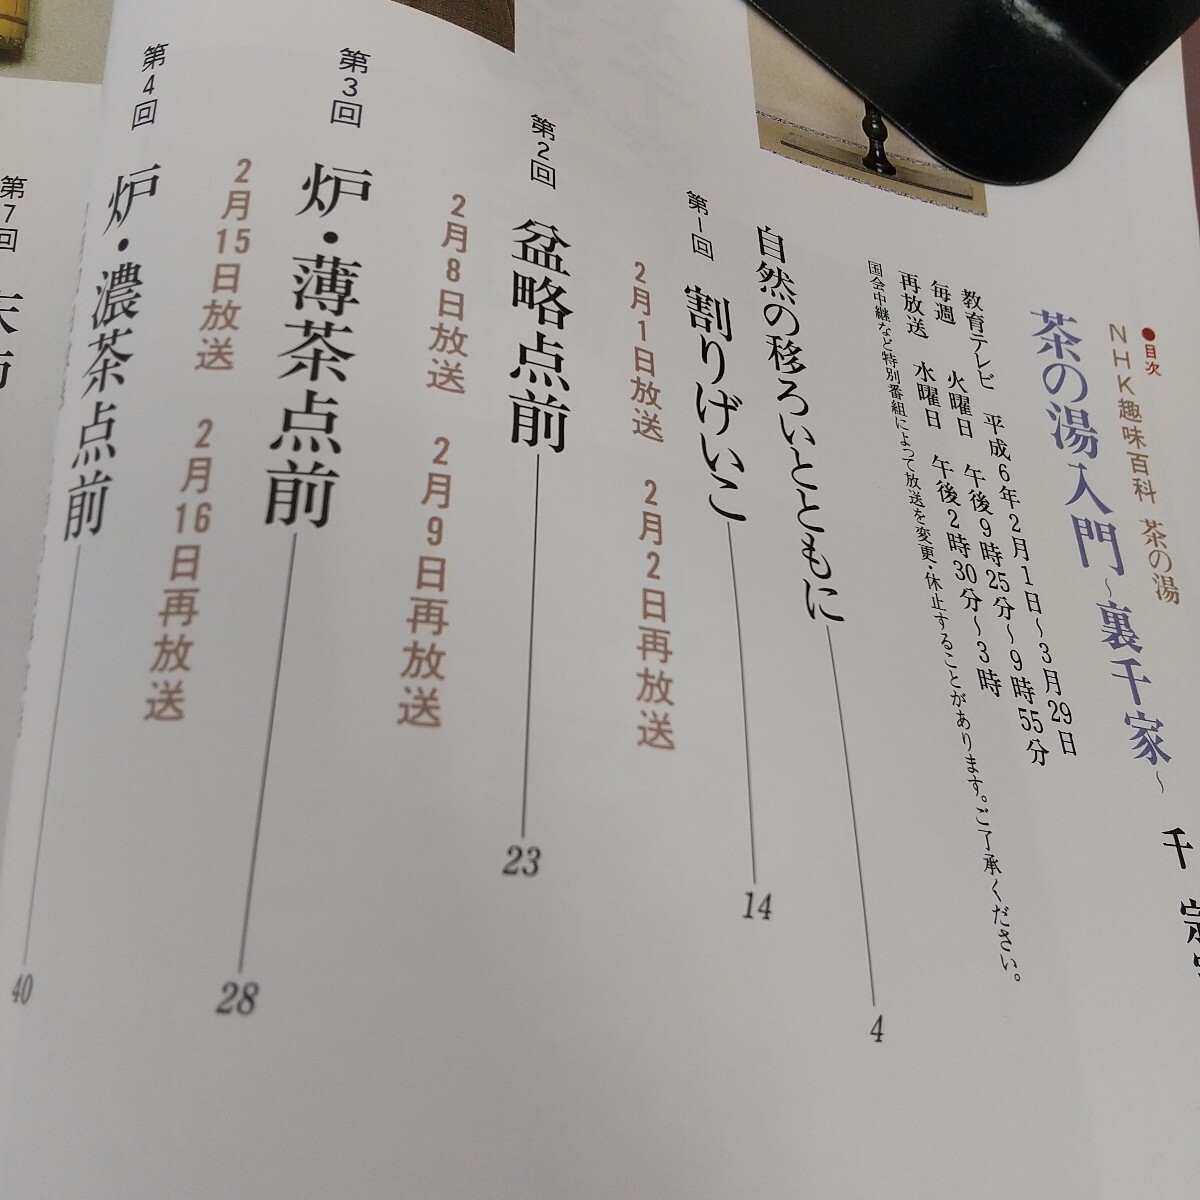 ●目次
NHK趣味百科 茶の湯
茶の湯入門～裏千家～
千 宗
教育テレビ 平成6年2月1日～3月29日
毎週 火曜日 午後9時25分～9時55分
再放送 水曜日 午後2時30分～3時
国会中継など特別番組によって放送を変更・休止することがあります。ご了承ください。
自然の移ろいとともに 4
第1回 割りげいこ 14
2月1日放送 2月2日再放送
第2回 盆略点前 23
2月8日放送 2月9日再放送
第3回 炉・薄茶点前 28
2月15日放送 2月16日再放送
第4回 炉・濃茶点前 40
第7回